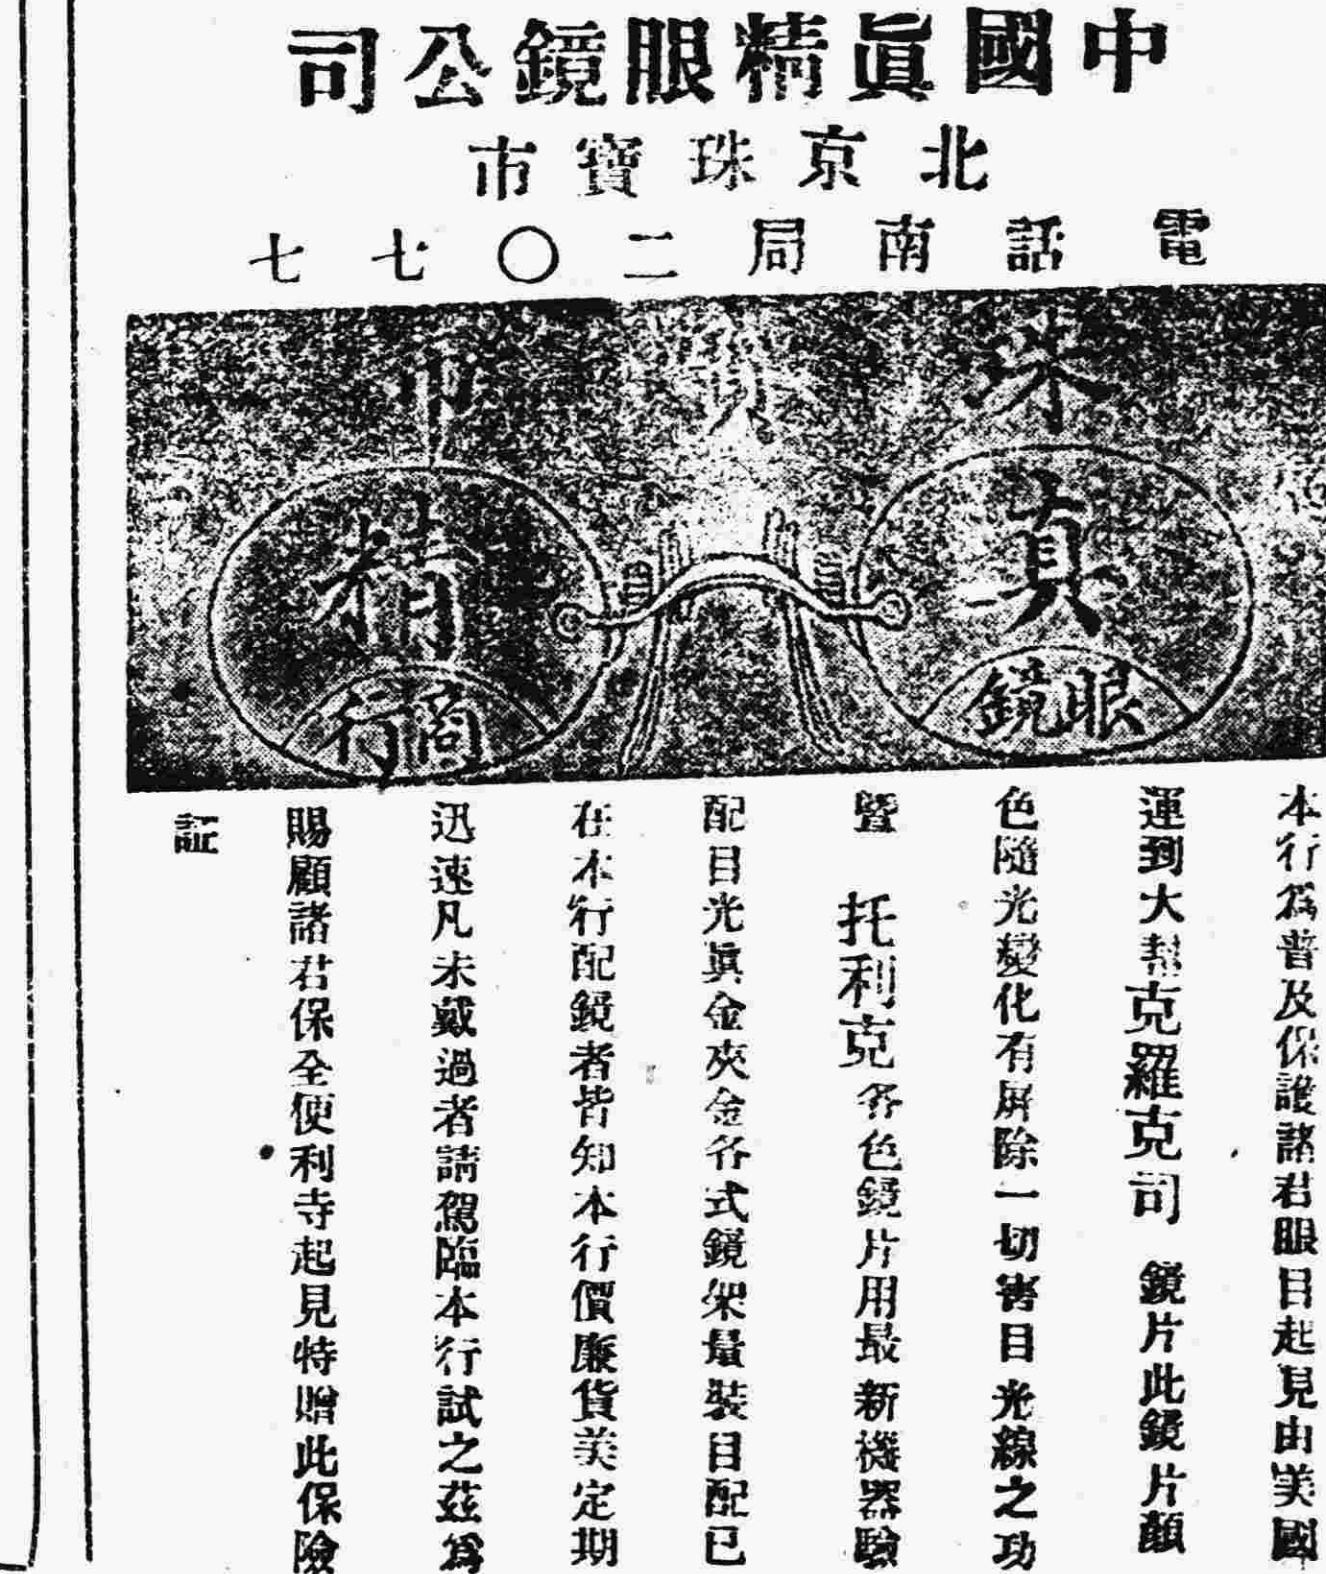 中國眞精眼鏡公司
北京珠寶市
電話南局二〇七七
珠寶市
眞
眼鏡
精
商行
本行爲普及保護諸君眼目起見由美國
運到大幫克羅克司鏡片此鏡片顏
色隨光變化有屏除一切害目光線之功
暨托利克各色鏡片用最新機器驗
配目光眞金夾金各式鏡架量裝目配已
在本行配鏡者皆知本行價廉貨美定期
迅速凡未戴過者請駕臨本行試之茲爲
賜顧諸君保全便利寺起見特贈此保險
証